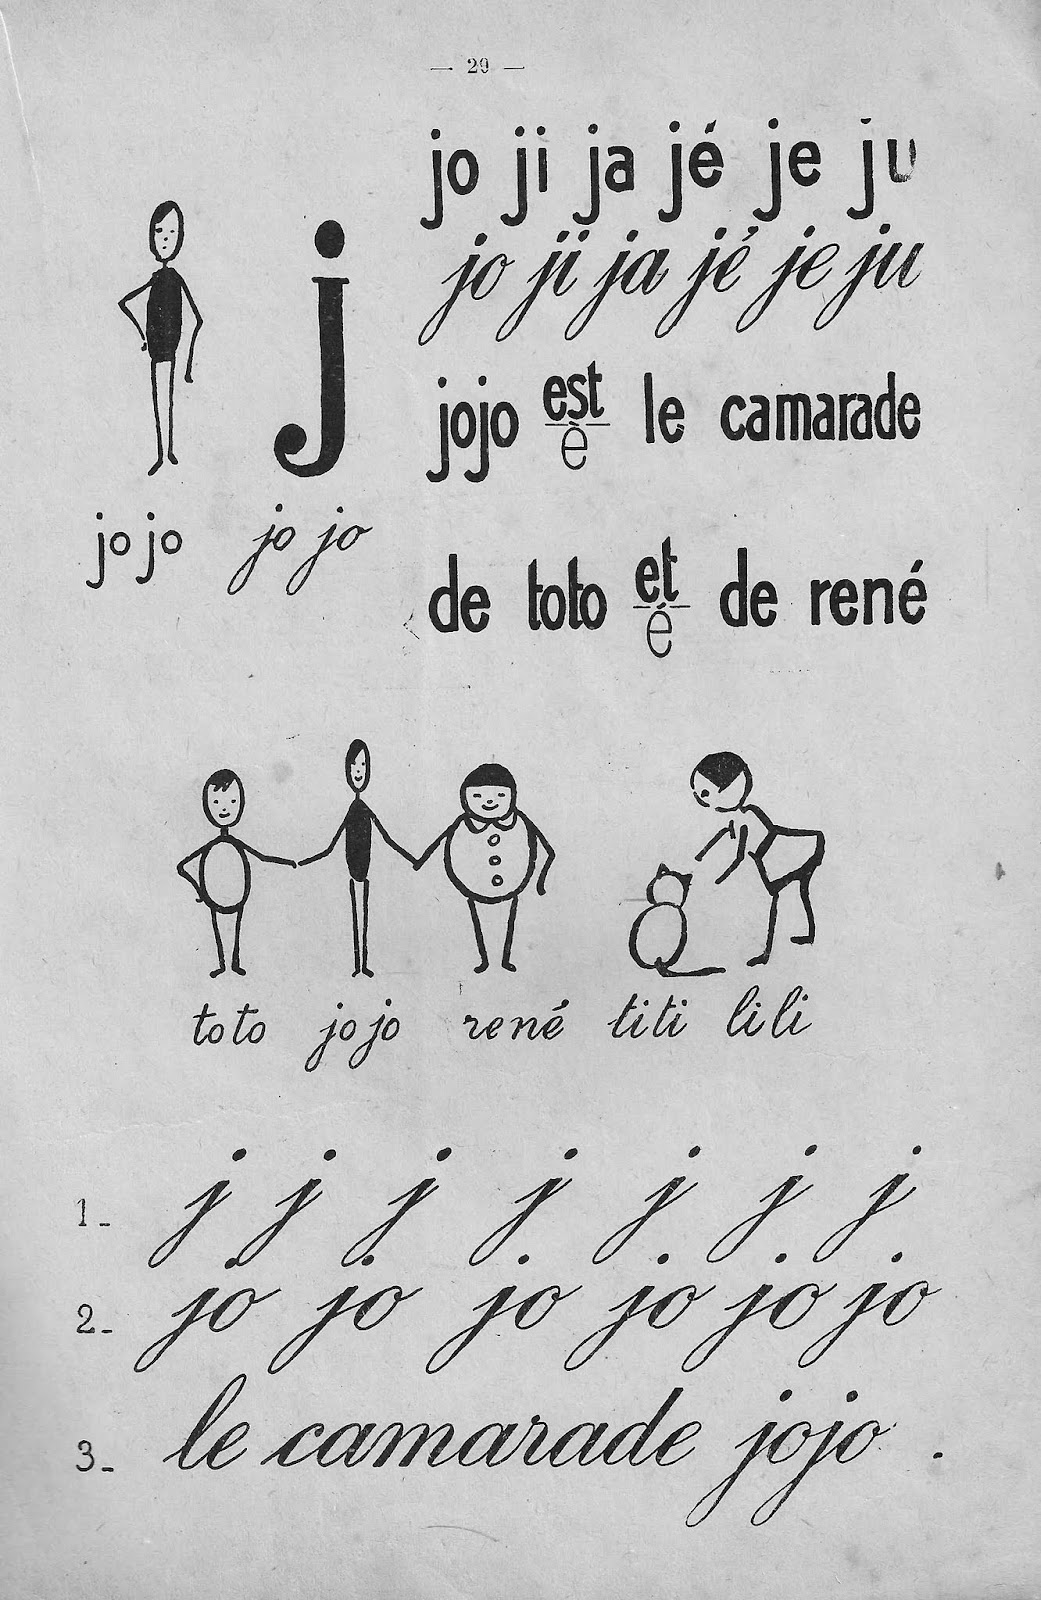 — 29 —
jo ji ja jé je ju
jo ji ja jé je ju
j
jojo est le camarade
è
jojo jojo
de toto et de rené
é
toto jojo rené titi lili
1_ j j j j j j j
2_ jo jo jo jo jo jo
3_ le camarade jojo .